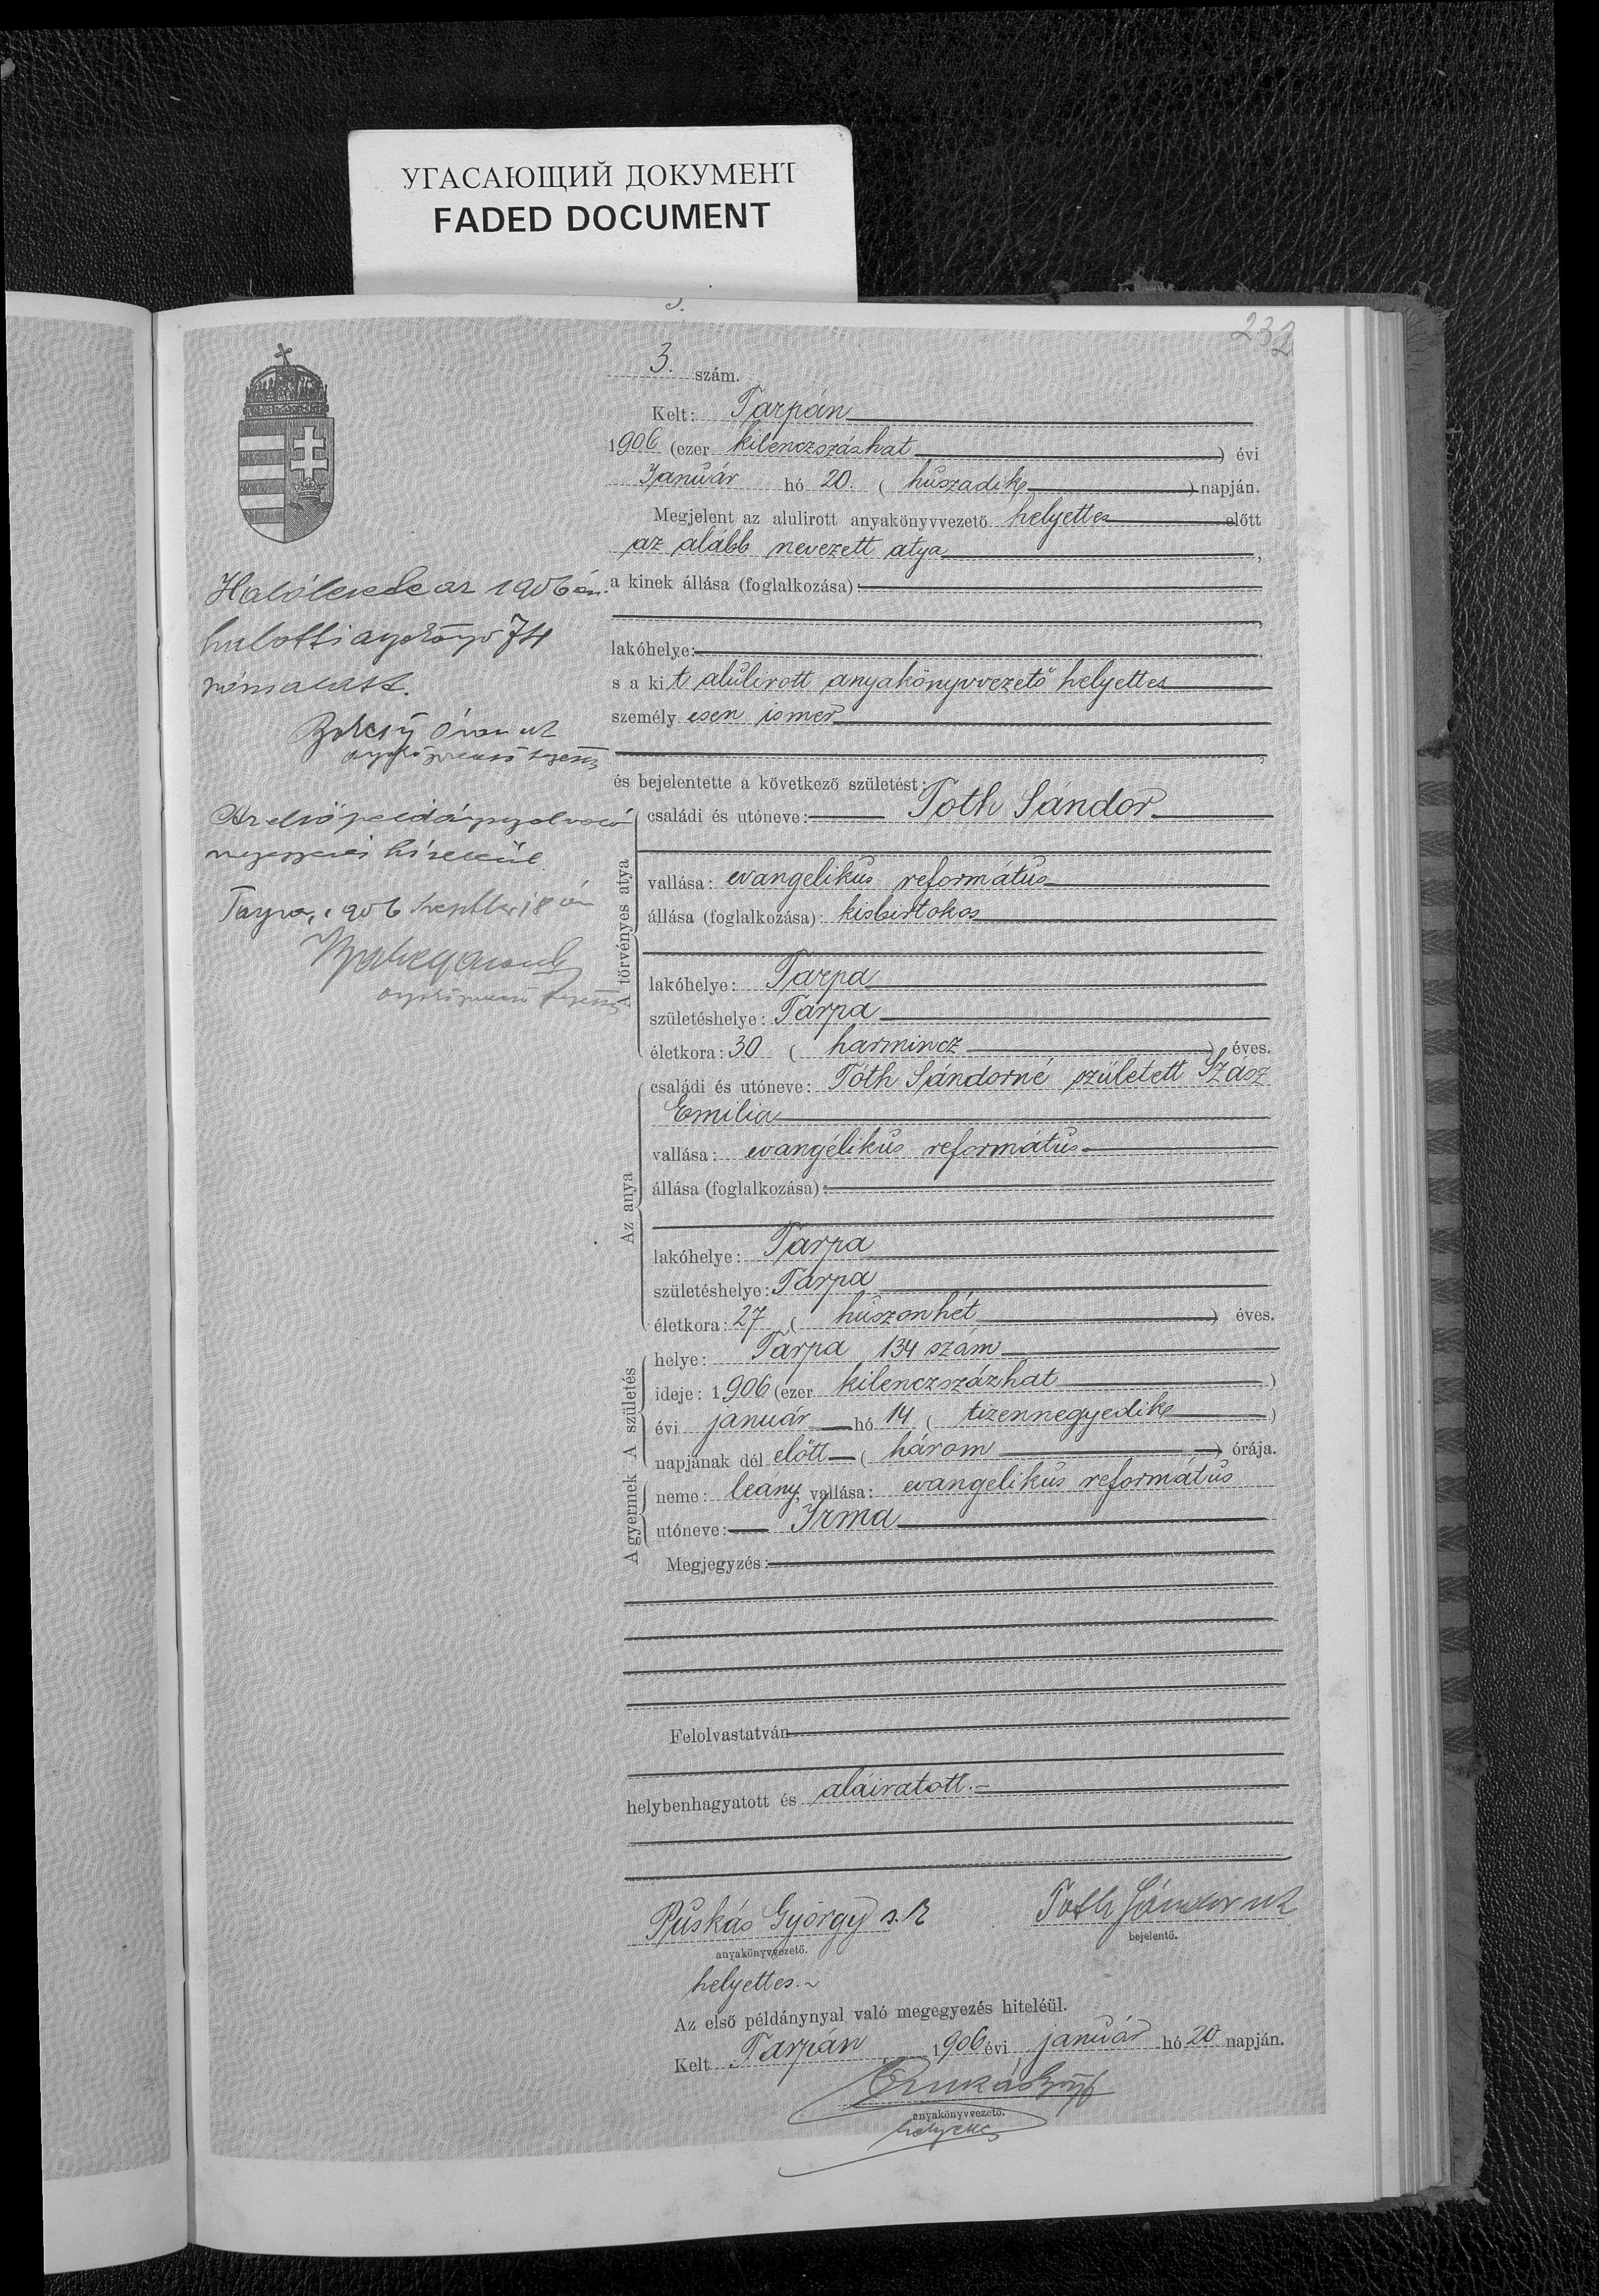 УГАСАЮЩИЙ ДОКУМЕНТ
FADED DOCUMENT
232
3. szám.
Kelt: Tarpán
1906 (ezer kilenczszázhat) évi
Január hó 20. (húszadik) napján.
Megjelent az alulirott anyakönyvvezető helyettes előtt
az alább nevezett atya,
a kinek állása (foglalkozása):
lakóhelye:
s a kit alulirott anyakönyvvezető helyettes
személyesen ismer
és bejelentette a következő születést:
A törvényes atya
családi és utóneve: Toth Sándor
vallása: evangelikus református
állása (foglalkozása): kisbirtokos
lakóhelye: Tarpa
születéshelye: Tarpa
életkora: 30 (harmincz) éves.
Az anya
családi és utóneve: Tóth Sándorné született Szász
Emilia
vallása: evangélikus református
állása (foglalkozása):
lakóhelye: Tarpa
születéshelye: Tarpa
életkora: 27 (húszonhét) éves.
A születés
helye: Tarpa 134 szám
ideje: 1906 (ezer kilenczszázhat)
évi január hó 14 (tizennegyedik)
napjának dél előtt (három) órája.
A gyermek
neme: leány, vallása: evangelikus református
utóneve: Irma
Megjegyzés:
Felolvastatván
helybenhagyatott és aláiratott.
Puskás György s. k
anyakönyvvezető.
helyettes
Toth Sándor
bejelentő.
Az első példánynyal való megegyezés hiteléül.
Kelt Tarpán 1906 évi január hó 20 napján.
anyakönyvvezető.
helyettes
az 1906
74
Tarpa, 1906 18 án